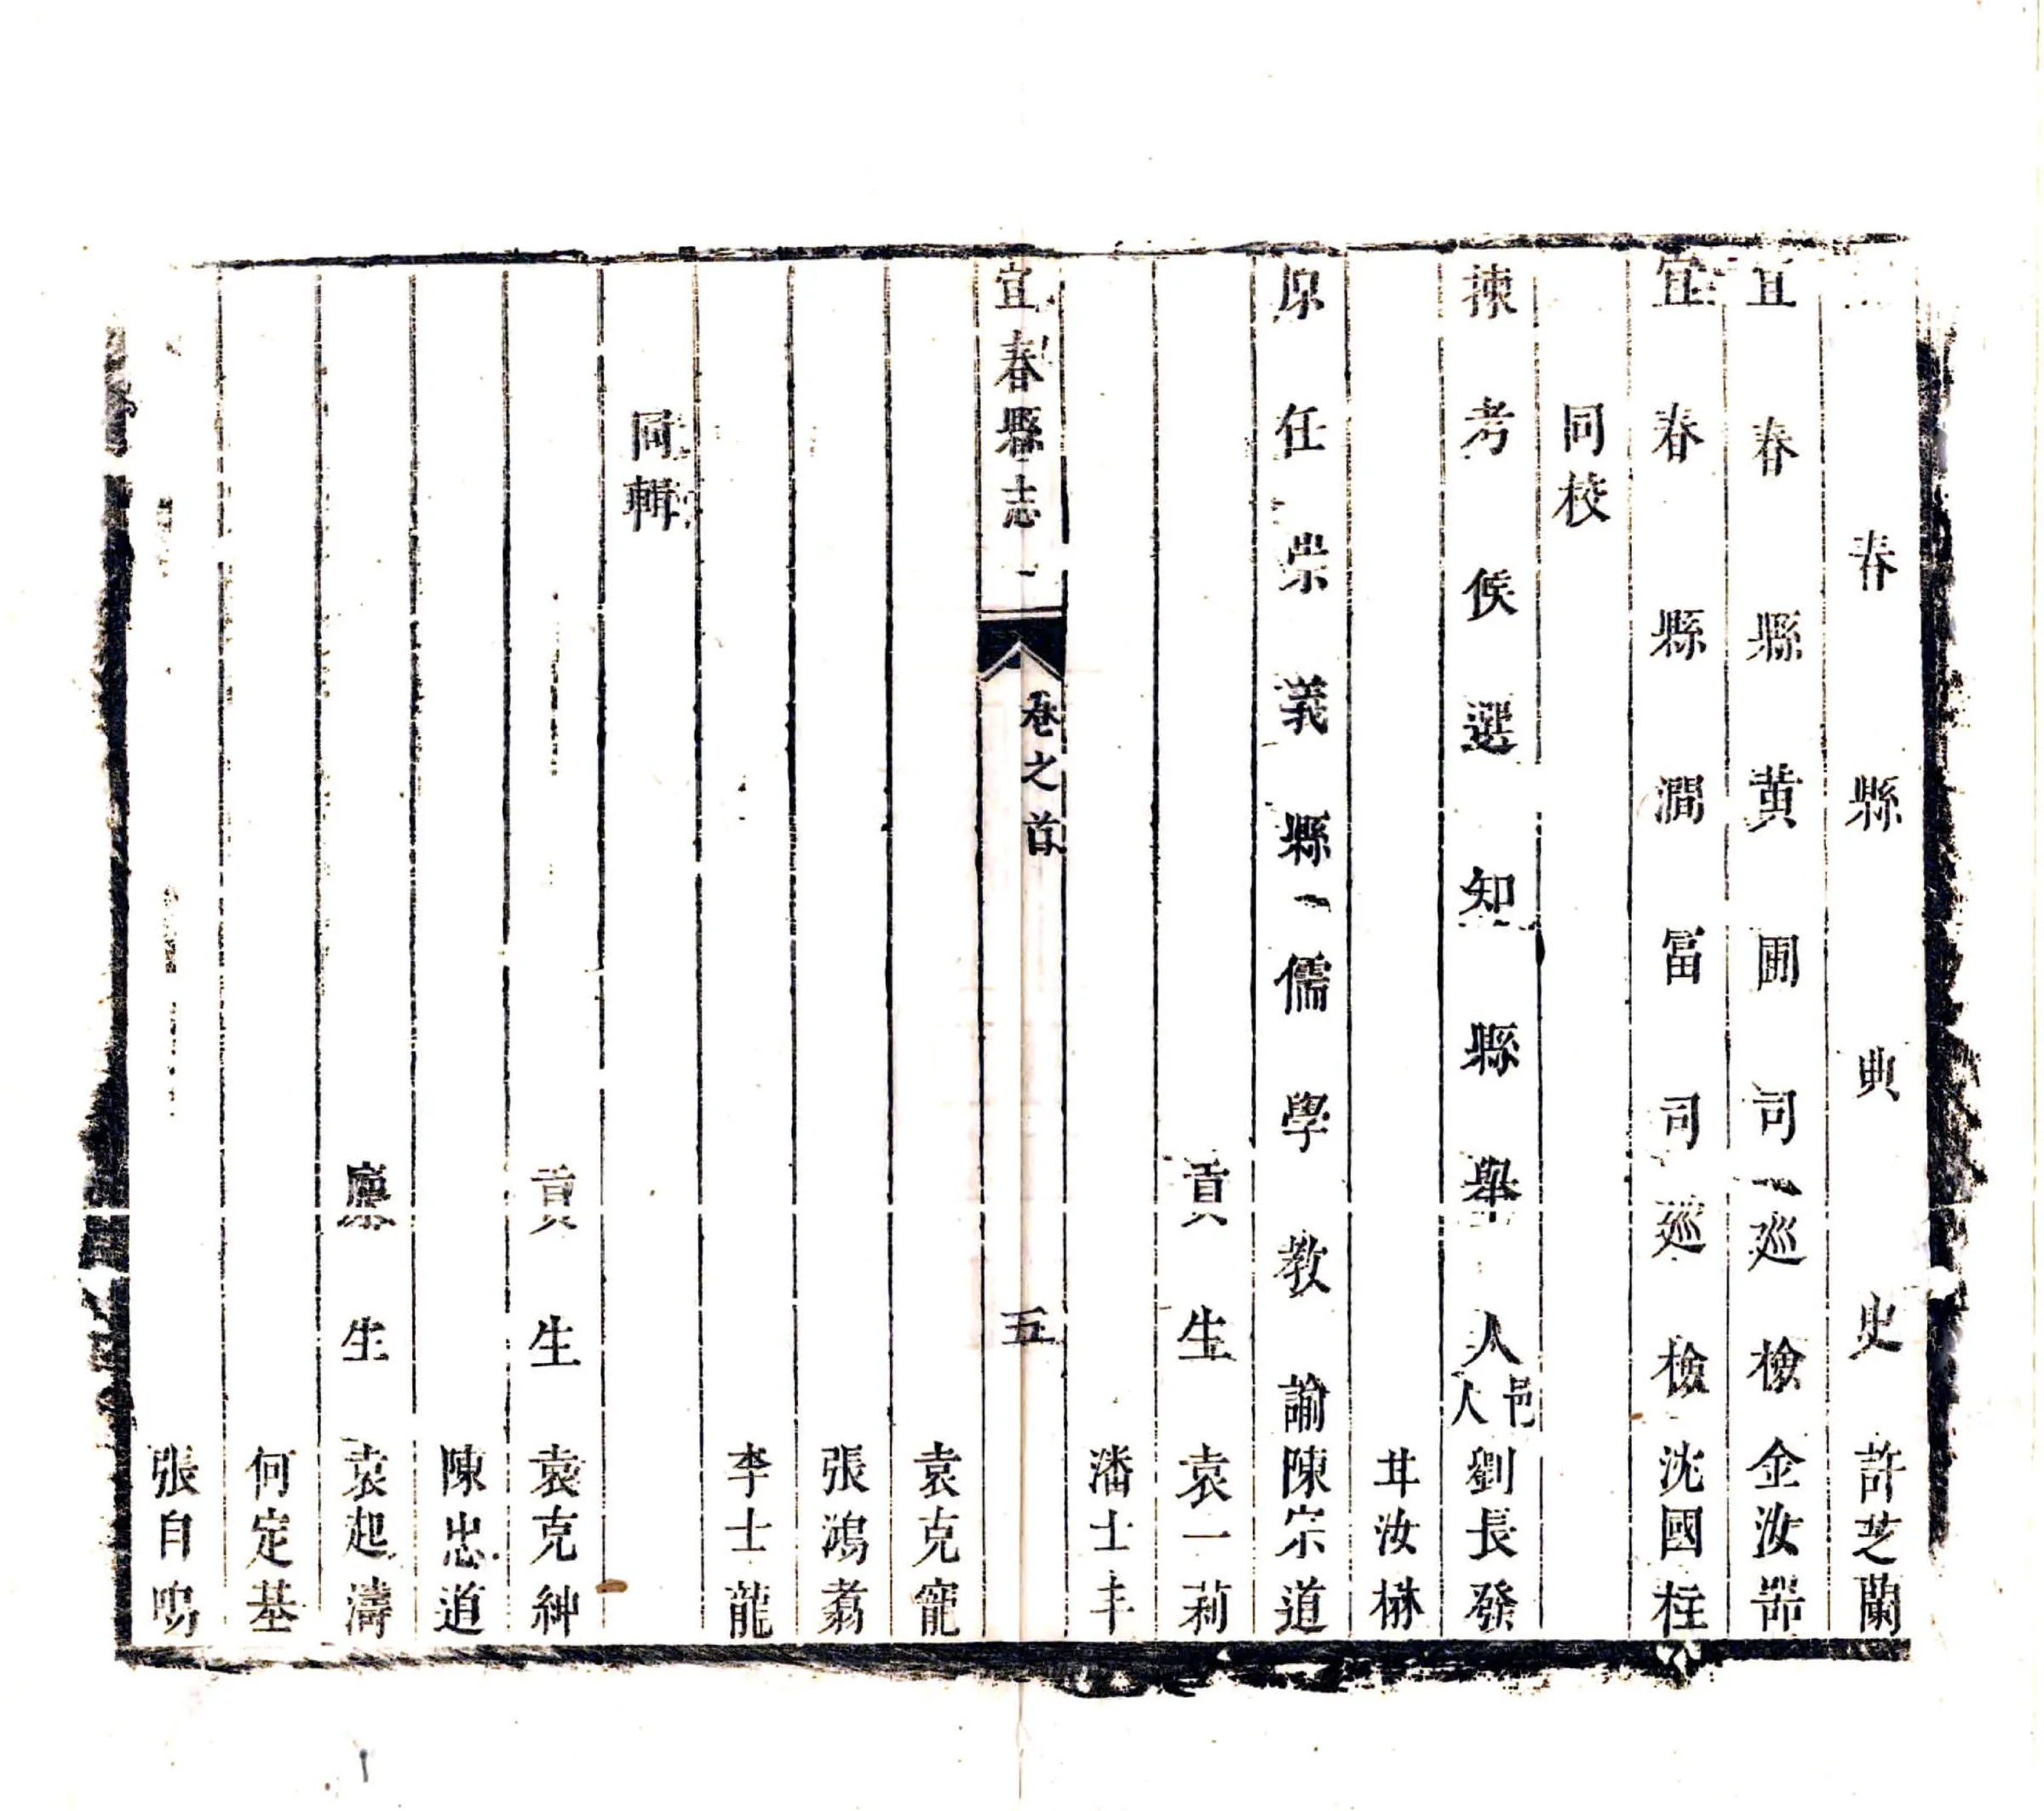 春縣典史許芝蘭
宜春縣黄圃司巡檢金汝
宜春縣澗富司巡檢沈國柱
同校
揀考候選知縣舉人邑人劉長發
汝楙
原任崇義縣儒學教諭陳宗道
貢生袁一莉
潘士丰
宜春縣志
卷之首
五
袁克寵
張鴻翥
李士龍
同輯
貢生袁克紳
陳忠道
廪生袁起濤
何定基
張自鳴